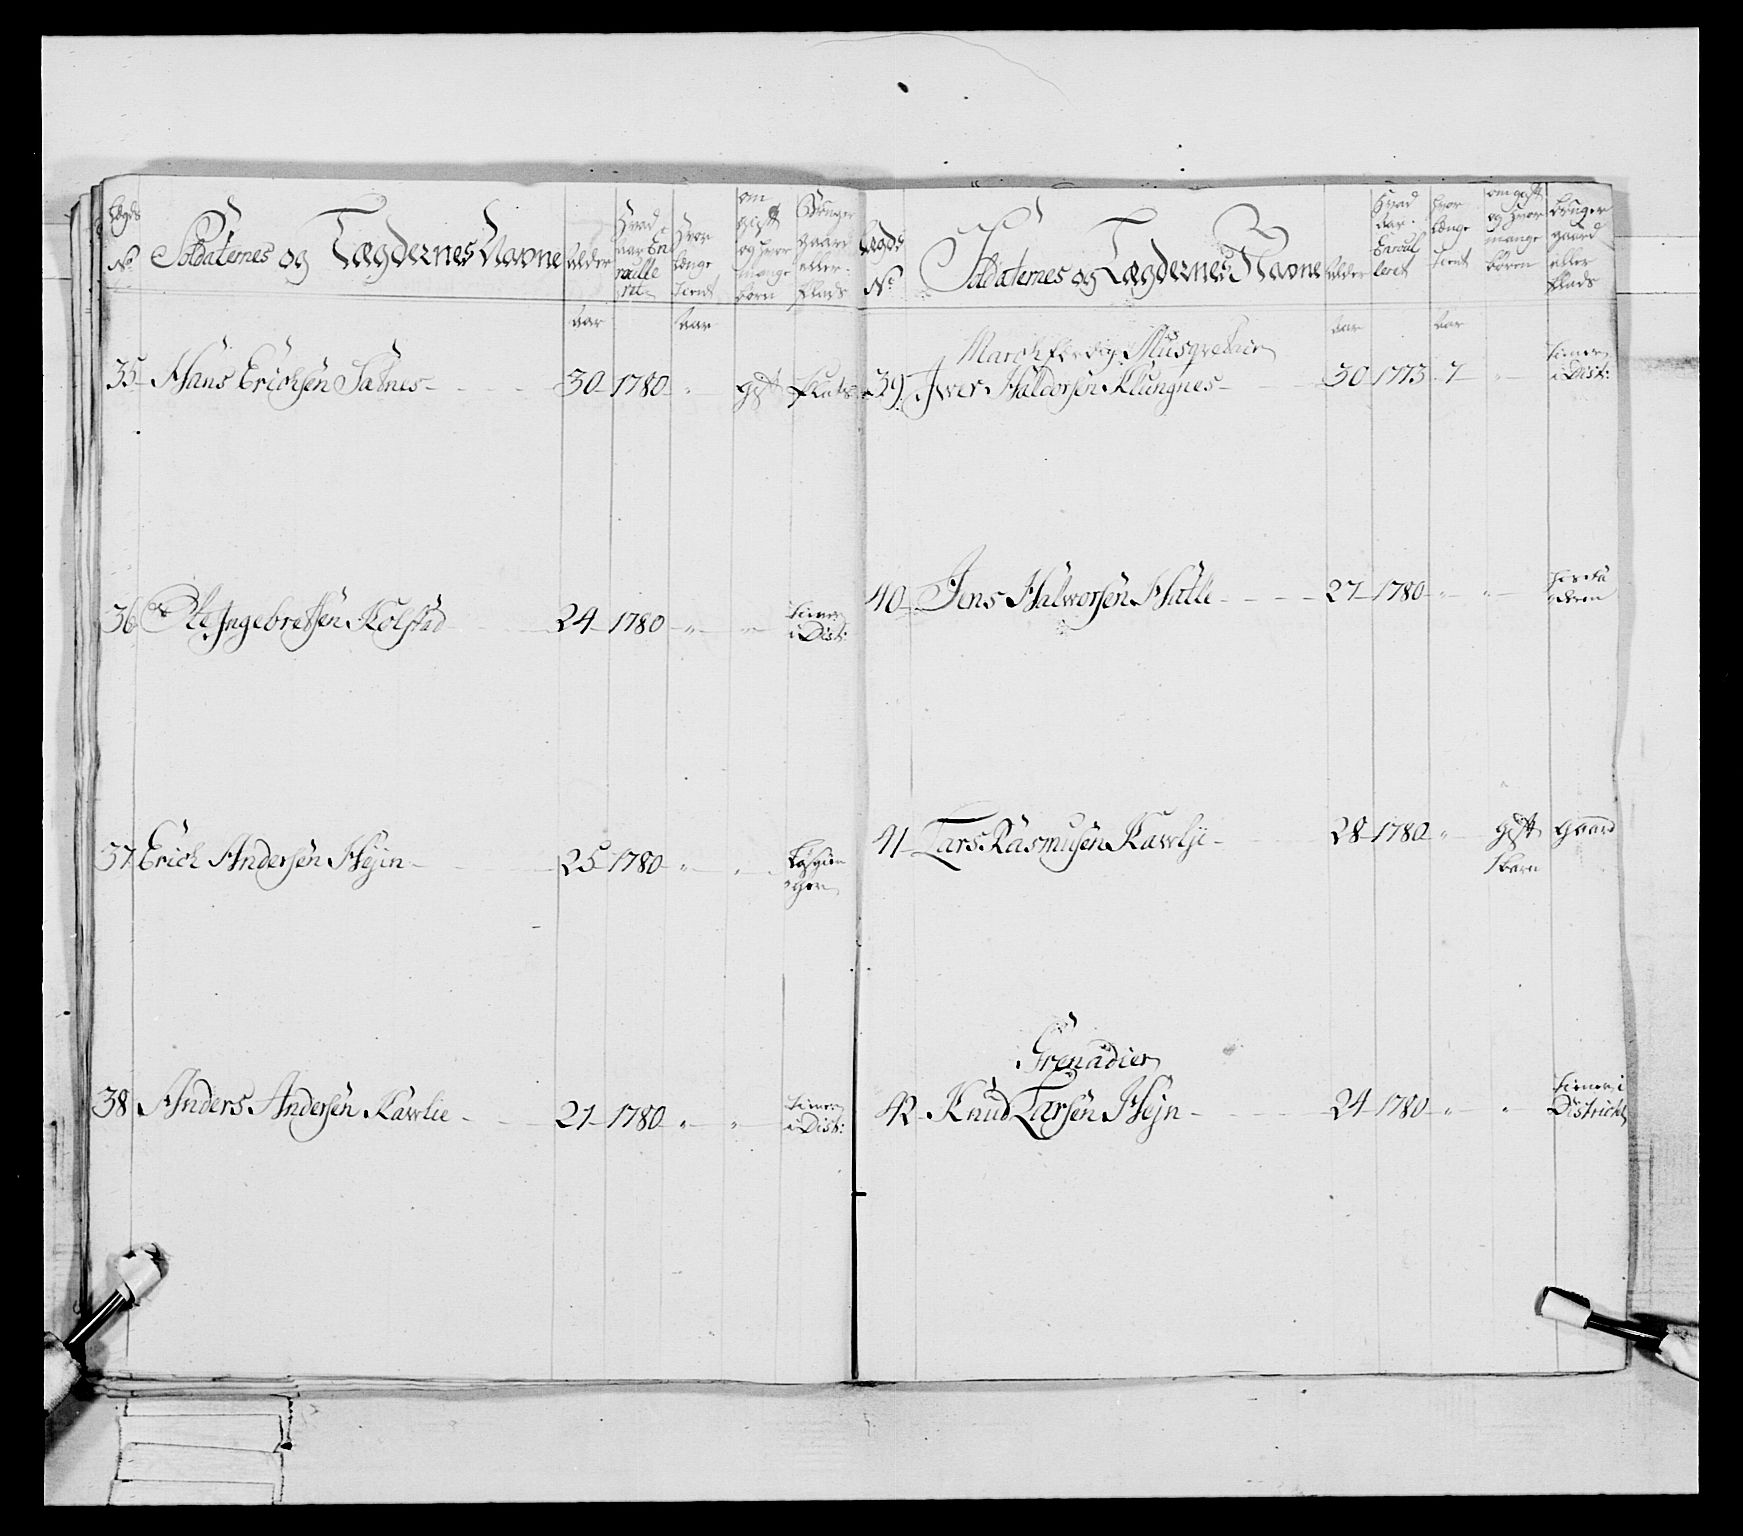 Lægds No Soldaternes og Lægdernes Navne Alder Hvad aar Enroulleret Hvor længe tient om gift og hvor mange børn Bruger gaard eller Plads
Aar Aar
35 Hans Erichsen Sætnes 30 1780 " gift Plads
36 Ole Ingebretsen Kolstad 24 1780 " " tiener i Dist:
37 Erich Andersen Hejin 25 1780 " "
38 Anders Andersen Kavlie 21 1780 " " tiener i Dist:
Lægds No Soldaternes og Lægdernes Navne Alder Hvad aar Enroulleret hvor længe tient om gift og hvor mange børn bruger gaard eller Plads
Aar Aar
Marchferdig Musqueteer
39 Iver Haldorsen Klungnes 30 1773 7 " tiener i Dist:
40 Jens Halworsen Hatle 27 1780 " "
41 Lars Rasmusen Kavlji 28 1780 " gift gaard
1 barn
Grenadier
42 Knud Larsen Hejn 24 1780 " " tiener i District